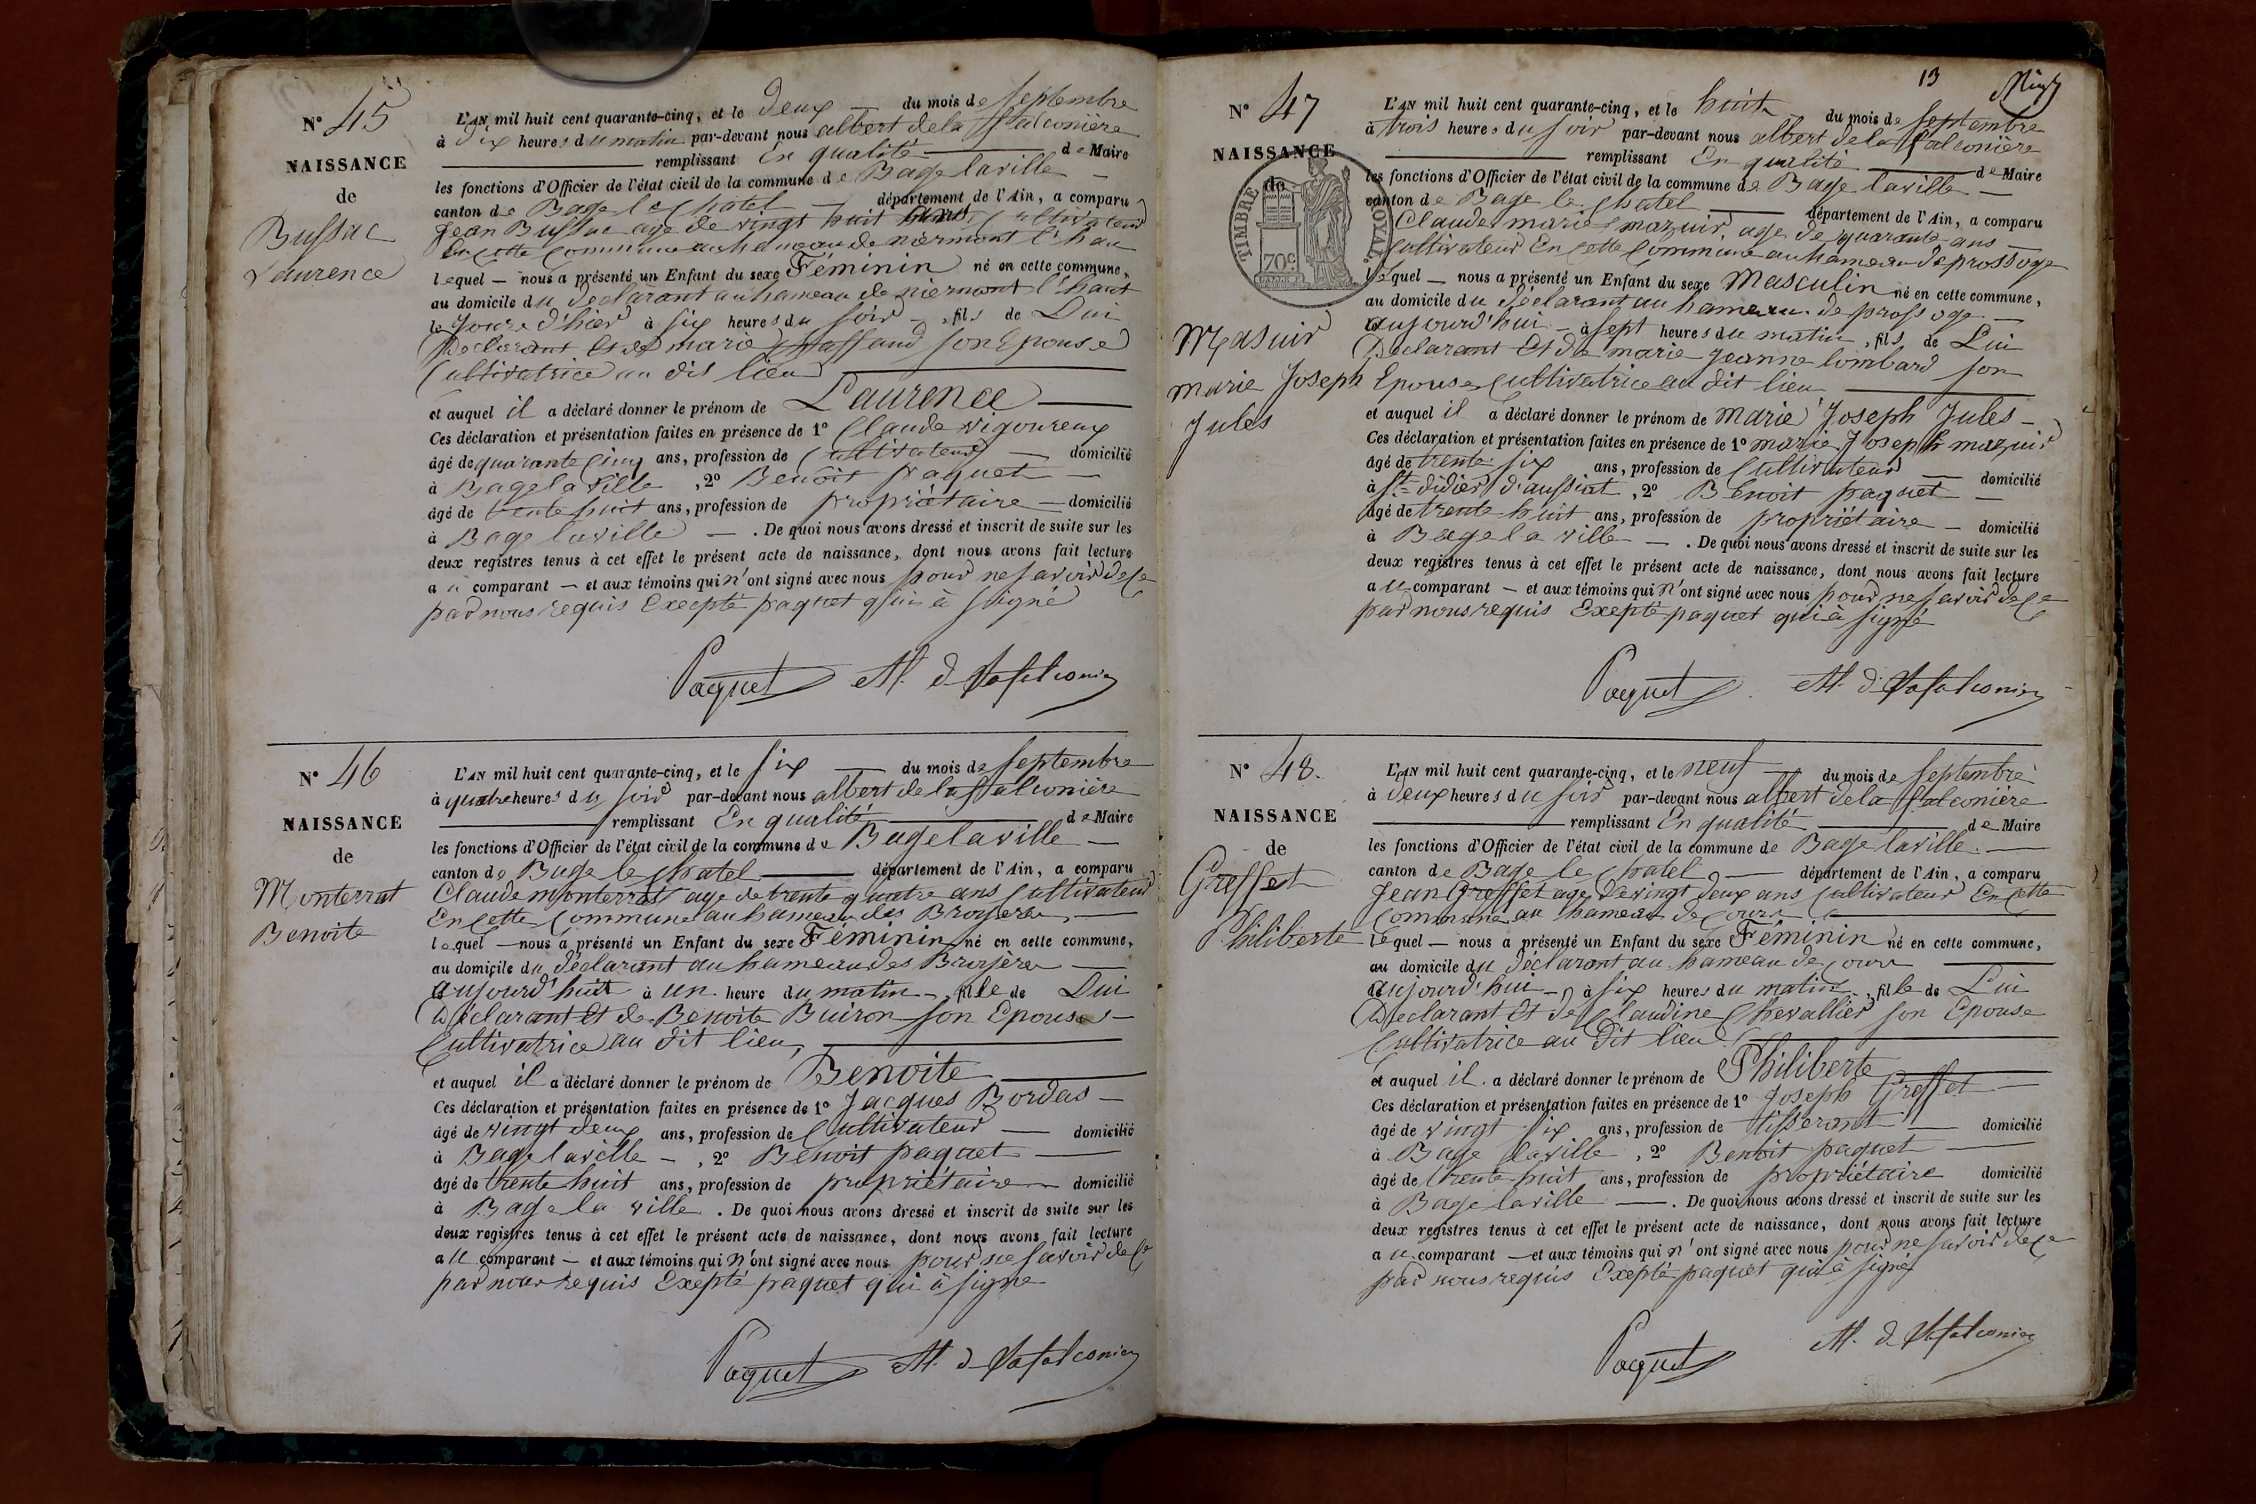 N° 45
NAISSANCE
de
Bussac
Laurence
L'AN mil huit cent quarante-cinq, et le deux — du mois de septembre
à dix heures du matin par-devant nous albert dela falconière
remplissant En qualité de Maire
les fonctions d'Officier de l'état civil de la commune de Bage laville —
canton de Bage le Chatel — département de l'Ain, a comparu
Jean Bussac age de vingt huit ans, Cultivateur
En cette Commune au hameau de niermont l'hau
lequel — nous a présenté un Enfant du sexe Féminin né en cette commune,
au domicile du déclarant au hameau de niermont l'haut
le jour d'hier à six heures du soir — , fils de Lui
Déclarant Et de marie son Epouse
Cultivatrice au dit lieu
et auquel il a déclaré donner le prénom de Laurence —
Ces déclaration et présentation faites en présence de 1° Claude vigoureux
âgé de quarante Cinq ans, profession de Cultivateur — domicilié
à Bage la ville , 2° Benoit paquet —
âgé de trente huit ans, profession de propriétaire — domicilié
à Bage laville — . De quoi nous avons dressé et inscrit de suite sur les
deux registres tenus à cet effet le présent acte de naissance, dont nous avons fait lecture
au comparant — et aux témoins qui n'ont signé avec nous pour ne savoir de ce
par nous requis Excepté paquet qui à signé
Paquet Al. d Lafalconière
N° 46
NAISSANCE
de
Monterrat
Benoite
L'AN mil huit cent quarante-cinq, et le six — du mois de septembre
à quatre heures du soir par-devant nous albert de la falconière
remplissant En qualité de Maire
les fonctions d'Officier de l'état civil de la commune de Bage la ville —
canton de Bage le chatel — département de l'Ain, a comparu
Claude monterrat age de trente quatre ans Cultivateur
En cette Commune au hameau des Bruyères —
lequel — nous a présenté un Enfant du sexe Féminin né en cette commune,
au domicile du déclarant au hameau des Bruyères —
aujourd'huit à un heure du matin — , fille de Lui
Déclarant Et de Benoite Buiron son Epouse —
Cultivatrice au dit lieu, —
et auquel il a déclaré donner le prénom de Benoite —
Ces déclaration et présentation faites en présence de 1° Jacques Bordas —
âgé de vingt deux ans, profession de Cultivateur — domicilié
à Bage la ville — , 2° Benoit paquet —
âgé de trente huit ans, profession de propriétaire — domicilié
à Bage la ville . De quoi nous avons dressé et inscrit de suite sur les
deux registres tenus à cet effet le présent acte de naissance, dont nous avons fait lecture
au comparant — et aux témoins qui n'ont signé avec nous pour ne savoir de ce
par nous requis Exepté paquet qui à signé
Paquet Al. d Lafalconière
13
N° 47
NAISSANCE
de
TIMBRE ROYAL
70c
Masuir
marie Joseph
Jules
L'AN mil huit cent quarante-cinq, et le huit du mois de septembre
à trois heures du soir par-devant nous albert dela falconière
remplissant En qualité de Maire
les fonctions d'Officier de l'état civil de la commune de Bage laville —
canton de Bage le Chatel — département de l'Ain, a comparu
Claude marie mazuir age de quarante ans —
Cultivateur En cette Commune au hameau de prossoge
lequel — nous a présenté un Enfant du sexe Masculin né en cette commune,
au domicile du déclarant au hameau de prossoge —
aujourd'hui — à sept heures du matin , fils de Lui
Déclarant Et de marie jeanne lombard son
Epouse Cultivatrice au dit lieu —
et auquel il a déclaré donner le prénom de marie Joseph Jules —
Ces déclaration et présentation faites en présence de 1° marie Joseph mazuir
âgé de trente six ans, profession de Cultivateur — domicilié
à St didier d'aussiat , 2° Benoit paquet —
âgé de trente huit ans, profession de propriétaire — domicilié
à Bage la ville — . De quoi nous avons dressé et inscrit de suite sur les
deux registres tenus à cet effet le présent acte de naissance, dont nous avons fait lecture
au comparant — et aux témoins qui n'ont signé avec nous pour ne savoir de ce
par nous requis Exepté paquet qui à signé
Paquet Al. d Lafalconière
N° 48.
NAISSANCE
de
Greffet
Philiberte
L'AN mil huit cent quarante-cinq, et le neuf — du mois de septembre
à deux heures du soir par-devant nous albert dela falconière
remplissant En qualité de Maire
les fonctions d'Officier de l'état civil de la commune de Bage laville. —
canton de Bage le Chatel — département de l'Ain, a comparu
Jean Greffet age de vingt deux ans Cultivateur En cette
Commune au hameau de
lequel — nous a présenté un Enfant du sexe Féminin né en cette commune,
au domicile du déclarant au hameau de
aujourd'hui — , à six heures du matin , fille de Lui
Déclarant Et de Claudine Chevallier son Epouse
Cultivatrice au Dit lieu —
et auquel il a déclaré donner le prénom de Philiberte
Ces déclaration et présentation faites en présence de 1° Joseph Greffet —
âgé de vingt six ans, profession de tisserant — domicilié
à Bage laville , 2° Benoit paquet —
âgé de trente huit ans, profession de propriétaire domicilié
à Bage laville — . De quoi nous avons dressé et inscrit de suite sur les
deux registres tenus à cet effet le présent acte de naissance, dont nous avons fait lecture
au comparant — et aux témoins qui n'ont signé avec nous pour ne savoir de ce
par nous requis Exepté paquet qui à signé
Paquet Al. d Lafalconière